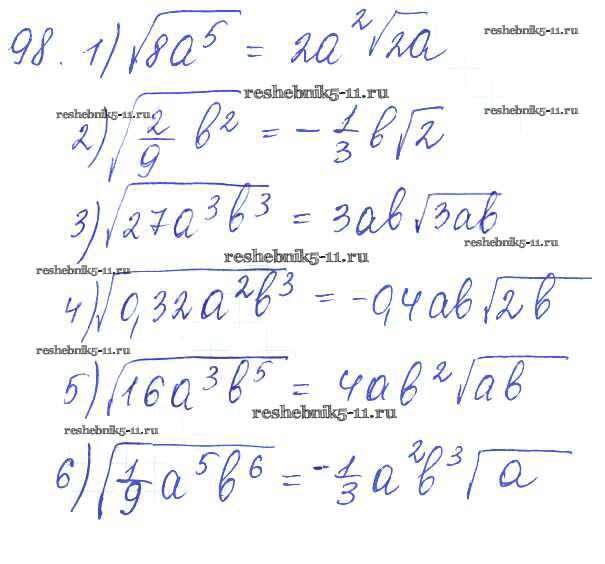 reshebnik5-11.ru
98. 1) √(8a⁵) = 2a²√(2a)
reshebnik5-11.ru
reshebnik5-11.ru reshebnik5-11.ru
2) √(2/9 b²) = -1/3 b√2
3) √(27a³b³) = 3ab√(3ab)
reshebnik5-11.ru
reshebnik5-11.ru
reshebnik5-11.ru
4) √(0,32a²b³) = -0,4ab√(2b)
reshebnik5-11.ru
5) √(16a³b⁵) = 4ab²√(ab)
reshebnik5-11.ru
reshebnik5-11.ru
6) √(1/9 a⁵b⁶) = -1/3 a²b³√a